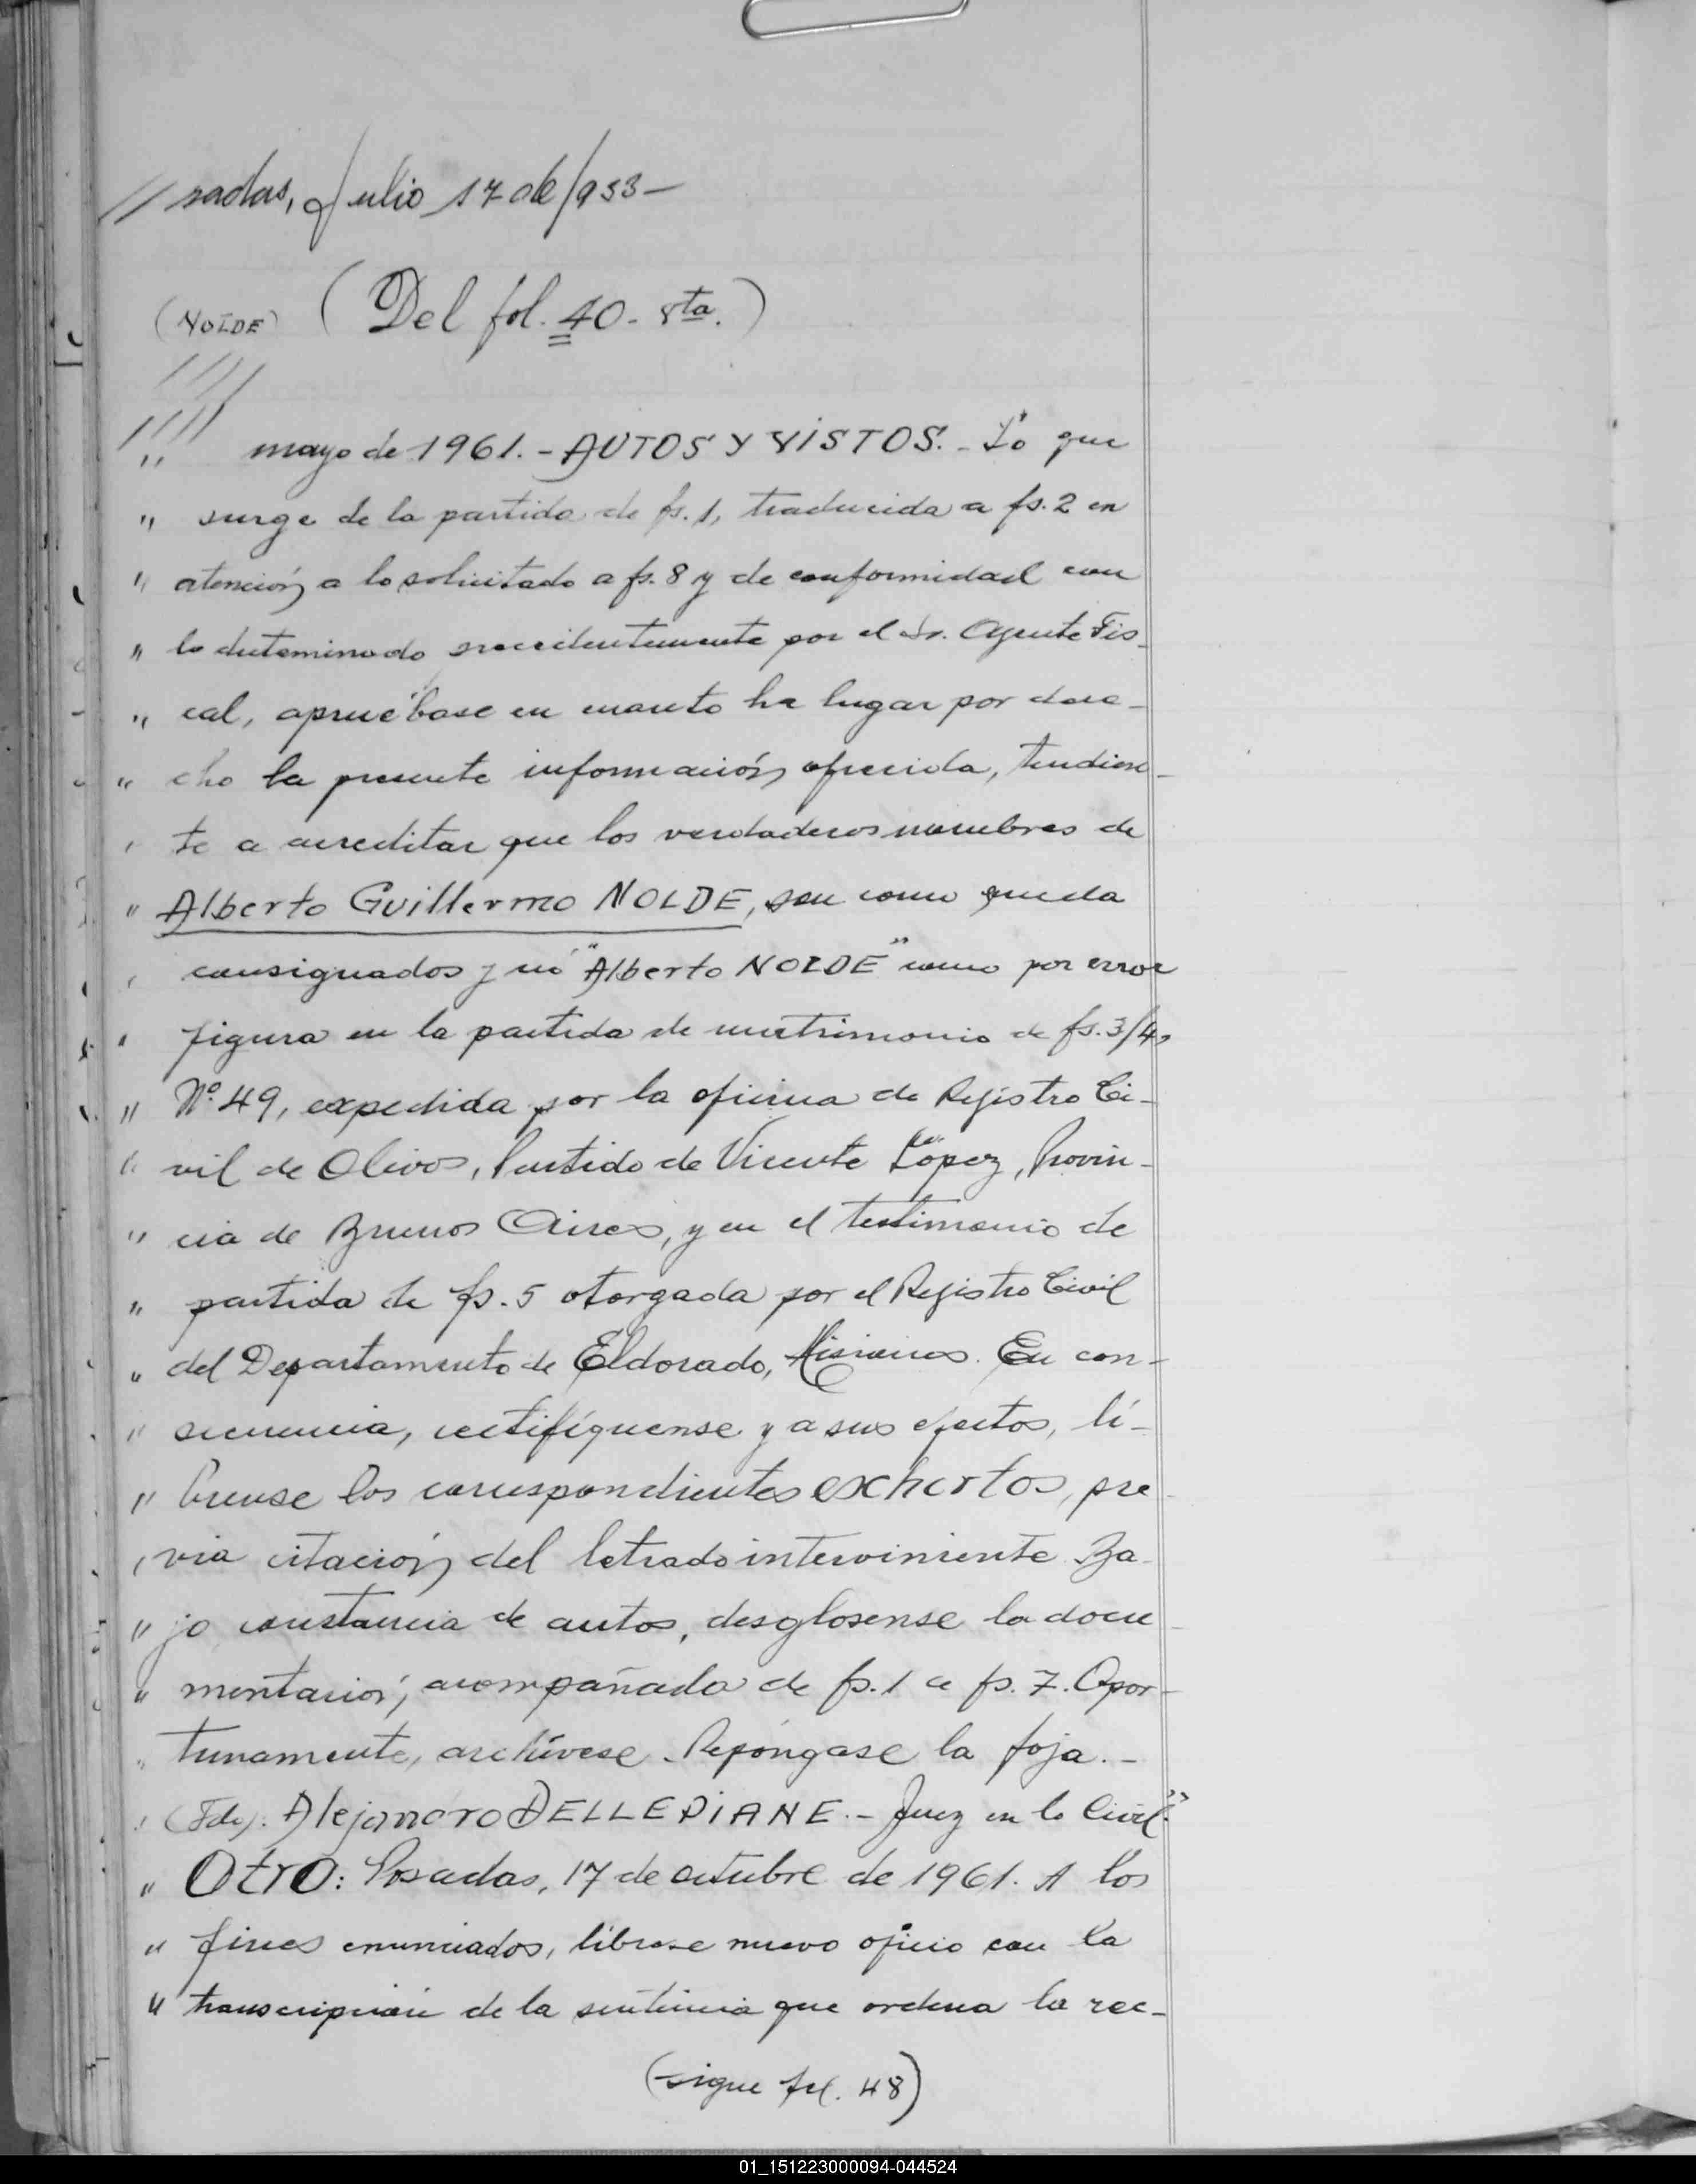 // sadas, Julio 17 de 1953 —
(NOLDE) (Del fol. 40 - vta.)
" mayo de 1961. - AUTOS Y VISTOS. - Lo que
" surge de la partida de fs. 1, traducida a fs. 2 en
" atención a lo solicitado a fs. 8 y de conformidad con
" lo determinado precedentemente por el Sr. Agente Fis-
" cal, apruébase en cuanto ha lugar por dere-
" cho la presente información ofrecida, tendien-
" te a acreditar que los verdaderos nombres de
" Alberto Guillermo NOLDE, son como queda
" consignados y no "Alberto NOLDE" como por error
" figura en la partida de matrimonio de fs. 3/4,
" Nº 49, expedida por la oficina de Registro Ci-
" vil de Olivos, Partido de Vicente López, Provin-
" cia de Buenos Aires, y en el testimonio de
" partida de fs. 5 otorgada por el Registro Civil
" del Departamento de Eldorado, Misiones. En con-
" secuencia, rectifíquense y a sus efectos, lí-
" brense los correspondientes exhortos, pre
" via citación del letrado interviniente. Ba-
" jo constancia de autos, desglosense la docu
" mentación, acompañada de fs. 1 a fs. 7. Opor-
" tunamente, archívese. Repóngase la foja. -
" (Fdo): Alejandro DELLEPIANE. - Juez en lo Civil."
" Otro: Posadas, 17 de octubre de 1961. A los
" fines enunciados, líbrese nuevo oficio con la
" transcripción de la sentencia que ordena la rec-
(sigue fol. 48)
01_151223000094-044524